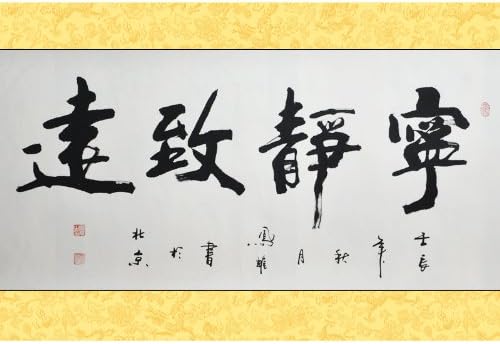 寧靜致遠
壬辰年秋月鳳雛書於北京